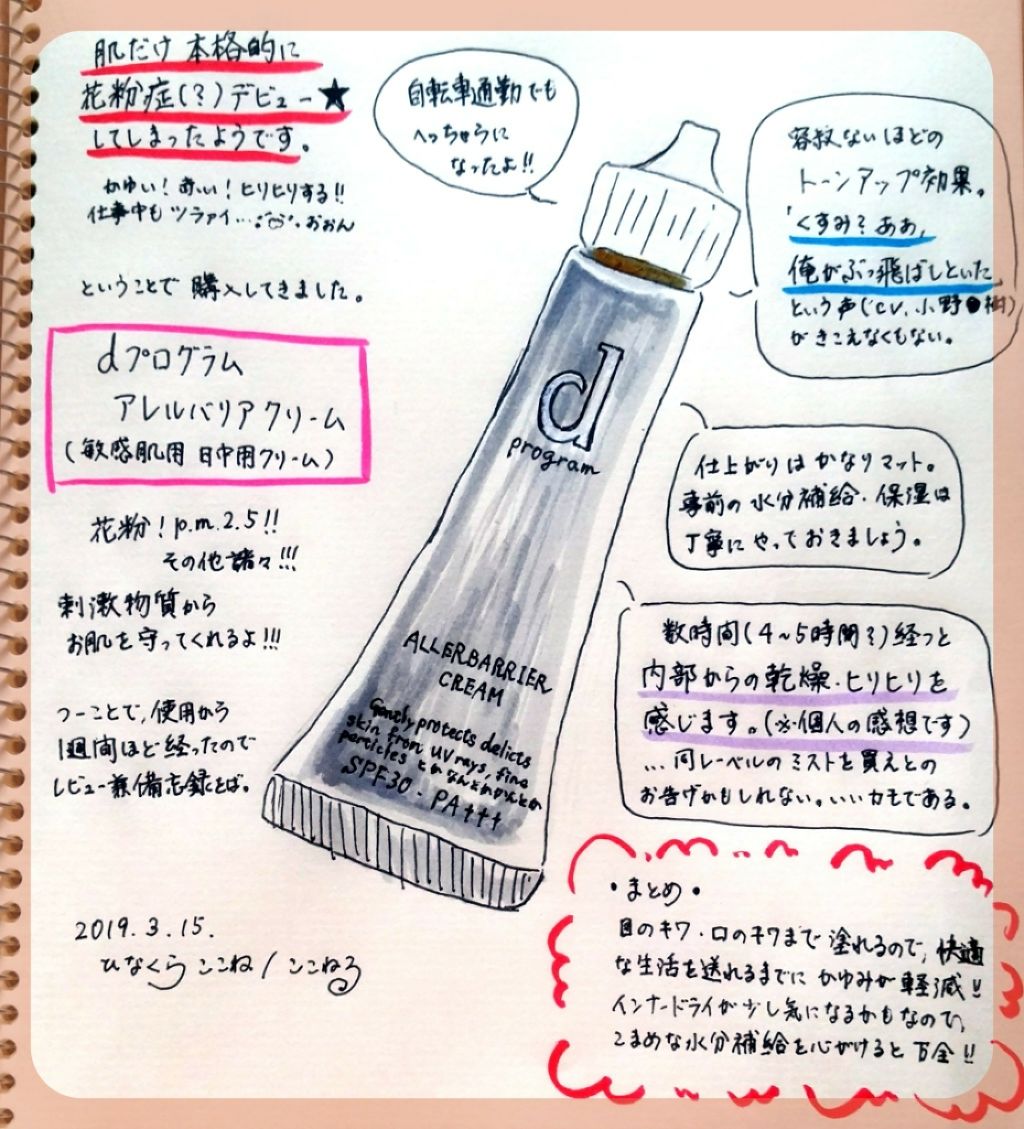 肌だけ 本格的に
花粉症(?)デビュー★
してしまったようです。
かゆい!赤い!ヒリヒリする!!
仕事中もツラァイ…おおん
ということで 購入してきました。
dプログラム
アレルバリアクリーム
(敏感肌用 日中用クリーム)
花粉!p.m.2.5!!
その他諸々!!!
刺激物質から
お肌を守ってくれるよ!!!
つーことで、使用から
1週間ほど経ったので
レビュー兼備忘録とば。
2019.3.15.
ひなくらここね/ここねる
自転車通勤でも
へっちゃらに
なったよ!!
d
program
ALLERBARRIER
CREAM
Gently protects delicts
skin from UV rays, fine
particles とかなんとかかんとか
SPF30・PA+++
容赦ないほどの
トーンアップ効果。
「くすみ?ああ、
俺がぶっ飛ばしといた
という声(cv.小野●樹)
がきこえなくもない。
仕上がりはかなりマット。
事前の水分補給・保湿は
丁寧にやっておきましょう。
数時間(4~5時間?)経つと
内部からの乾燥・ヒリヒリを
感じます。(※個人の感想です)
…同レーベルのミストを買えとの
お告げかもしれない。いいカモである。
・まとめ・
目のキワ・口のキワまで塗れるので、快適
な生活を送れるまでにかゆみが軽減!!
インナードライが少し気になるかもなので、
こまめな水分補給を心がけると万全!!